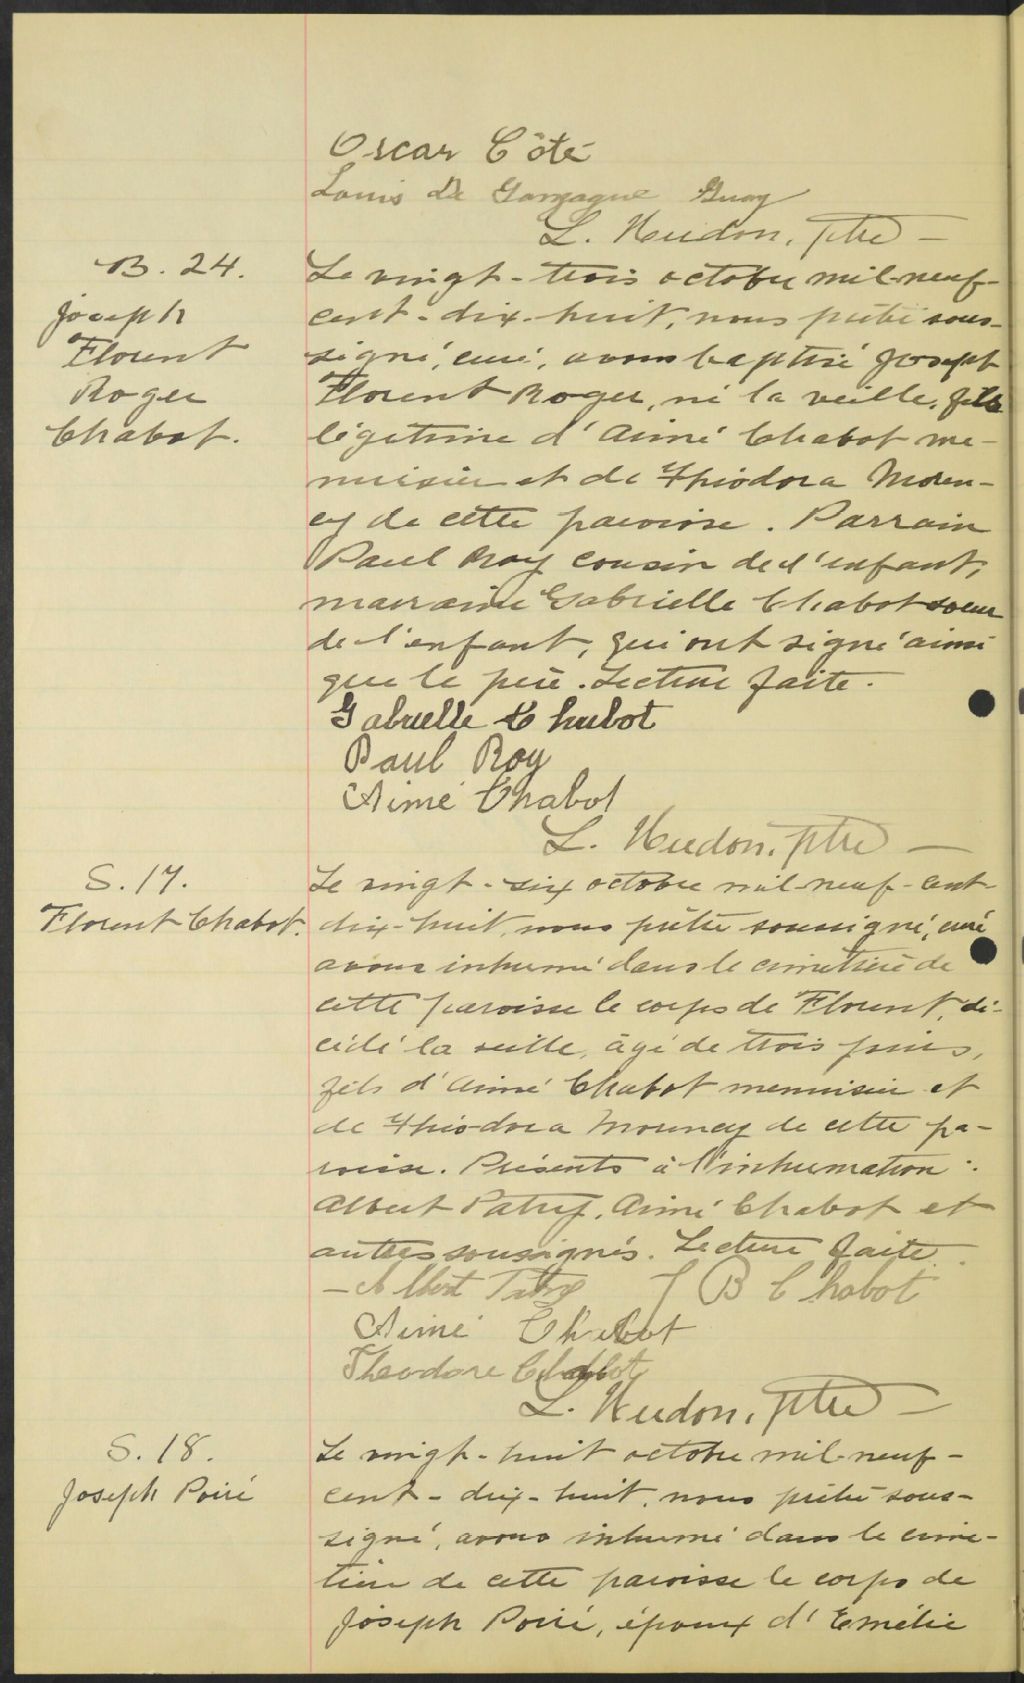 Oscar Côté
Louis De Gonzague Guay
L. Hudon, ptre
B. 24.
Joseph
Florent
Roger
Chabot.
Le vingt-trois octobre mil-neuf-
cent-dix-huit, nous prêtre sous-
signé, curé, avons baptisé Joseph
Florent Roger, né la veille, fils
légitime d'Aimé Chabot me-
nuisier et de Théodora Moren-
cy de cette paroisse. Parrain
Paul Roy cousin de l'enfant,
marraine Gabrielle Chabot soeur
de l'enfant, qui ont signé ainsi
que le père. Lecture faite.
Gabrielle Chabot
Paul Roy
Aimé Chabot
L. Hudon, ptre
S. 17.
Florent Chabot.
Le vingt-six octobre mil-neuf-cent-
dix-huit, nous prêtre soussigné, curé
avons inhumé dans le cimetière de
cette paroisse le corps de Florent, dé-
cédé la veille, âgé de trois jours,
fils d'Aimé Chabot menuisier et
de Théodora Morency de cette pa-
roisse. Présents à l'inhumation:
Albert Patry, Aimé Chabot et
autres soussignés. Lecture faite.
Albert Patry J B Chabot
Aimé Chabot
Theodore Chabot
L. Hudon, ptre
S. 18.
Joseph Poiré
Le vingt-huit octobre mil-neuf-
cent-dix-huit, nous prêtre sous-
signé, avons inhumé dans le cime-
tière de cette paroisse le corps de
Joseph Poiré, époux d'Emélie